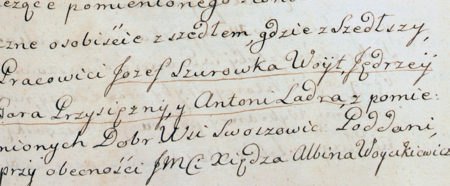 zące pomienionego
czne osobiście zszedłem, gdzie zszedłszy,
Pracowici Jozef Szurowka Woyt, Jędrzeiy
Gara Przysięznij, y Antoni Ladra, z pomie:
nionych Dobr Wsi Swoszowic Poddani,
przy obecności JMCi Xiędza Albina Woycikiewicz